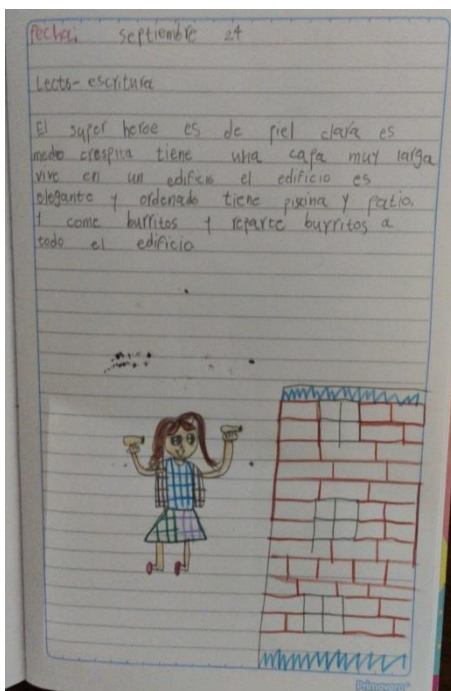 fecha: septiembre 24
Lecto-escritura
El super heroe es de piel clara es
medio crespita tiene una capa muy larga
vive en un edificio el edificio es
elegante y ordenado tiene piscina y patio.
Y come burritos y reparte burritos a
todo el edificio
Primavera